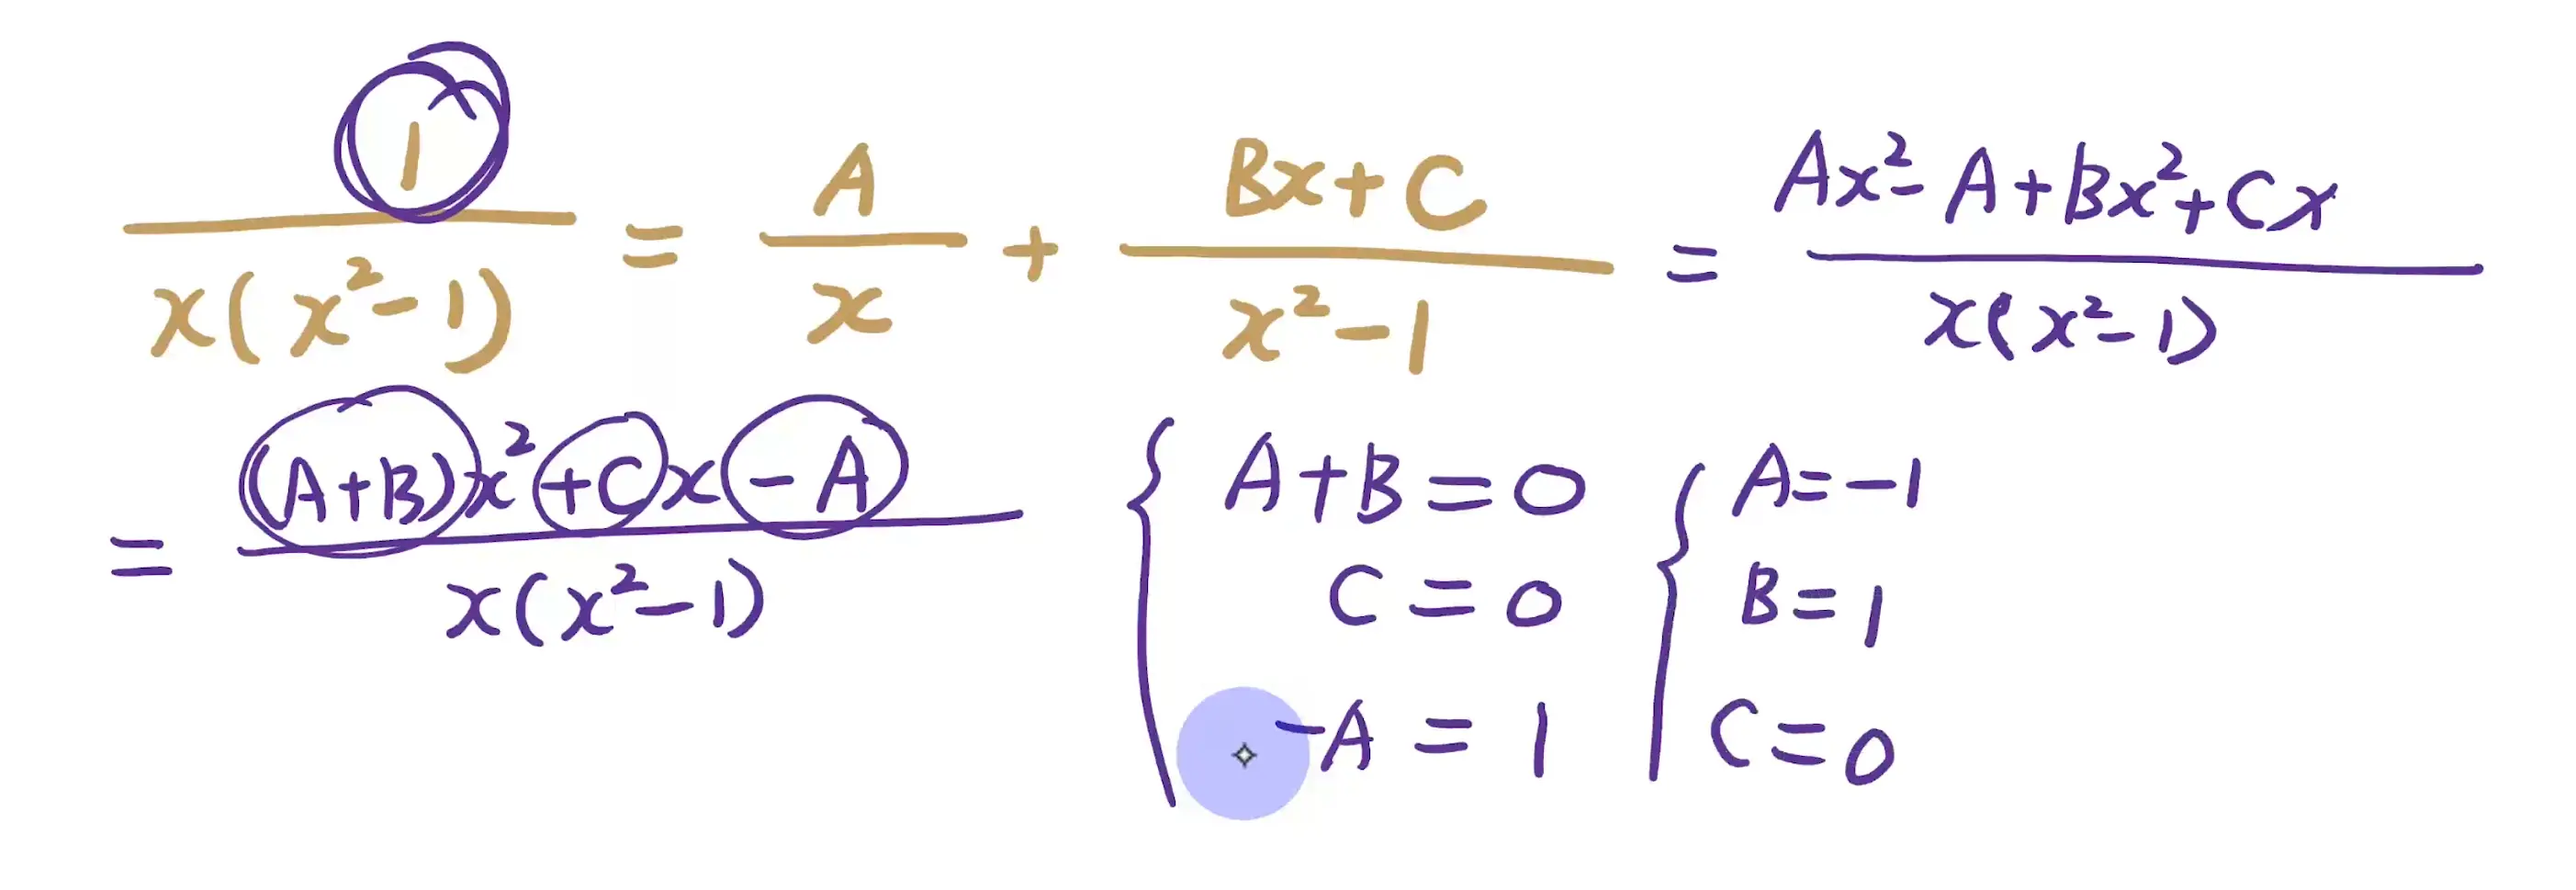 1/(x(x²-1)) = A/x + (Bx+C)/(x²-1) = (Ax²-A+Bx²+Cx)/(x(x²-1))
= ((A+B)x²+Cx-A)/(x(x²-1))
{ A+B=0
C=0
-A=1
{ A=-1
B=1
C=0